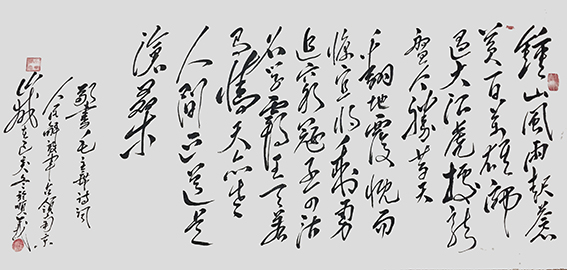 鍾山風雨起蒼
黄百万雄師
過大江虎踞龍
盤今勝昔天
翻地覆慨而
慷宜將剩勇
追窮寇不可沽
名學霸王天若
有情天亦老
人間正道是
滄桑
敬書毛主席詩詞
人民解放軍占領南京
己亥冬